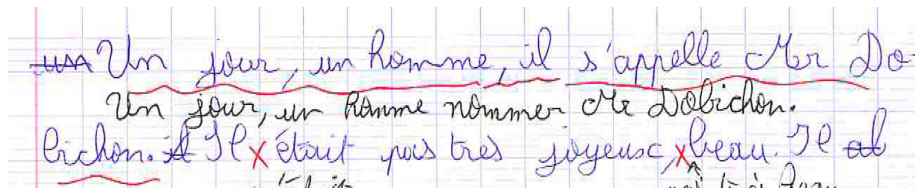 Un jour, un homme, il s'appelle Mr Do-
Un jour, un homme nommer Mr Dobichon.
bichon. Il était pas très joyeux, beau. Il